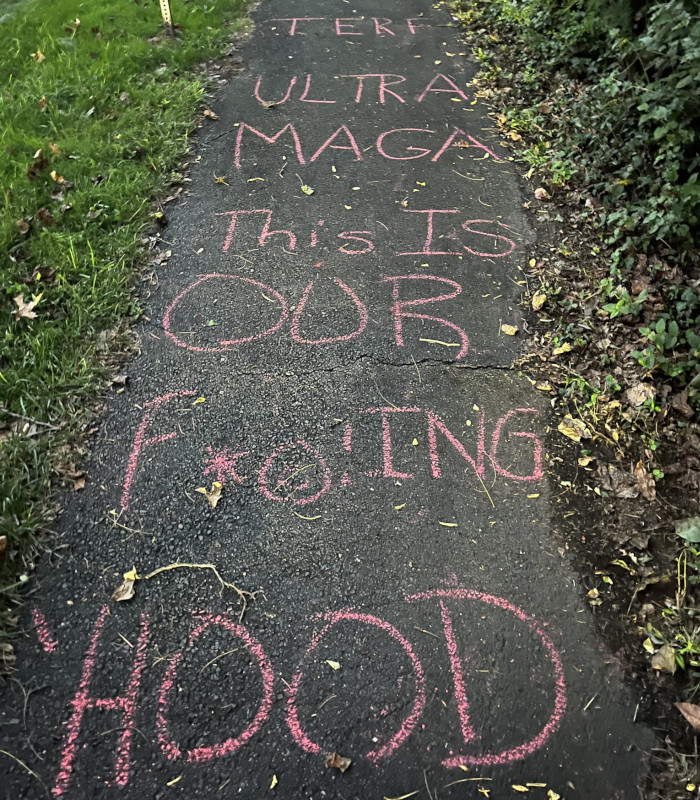 TERF
ULTRA
MAGA
This Is
OUR
F*@!ING
'HOOD